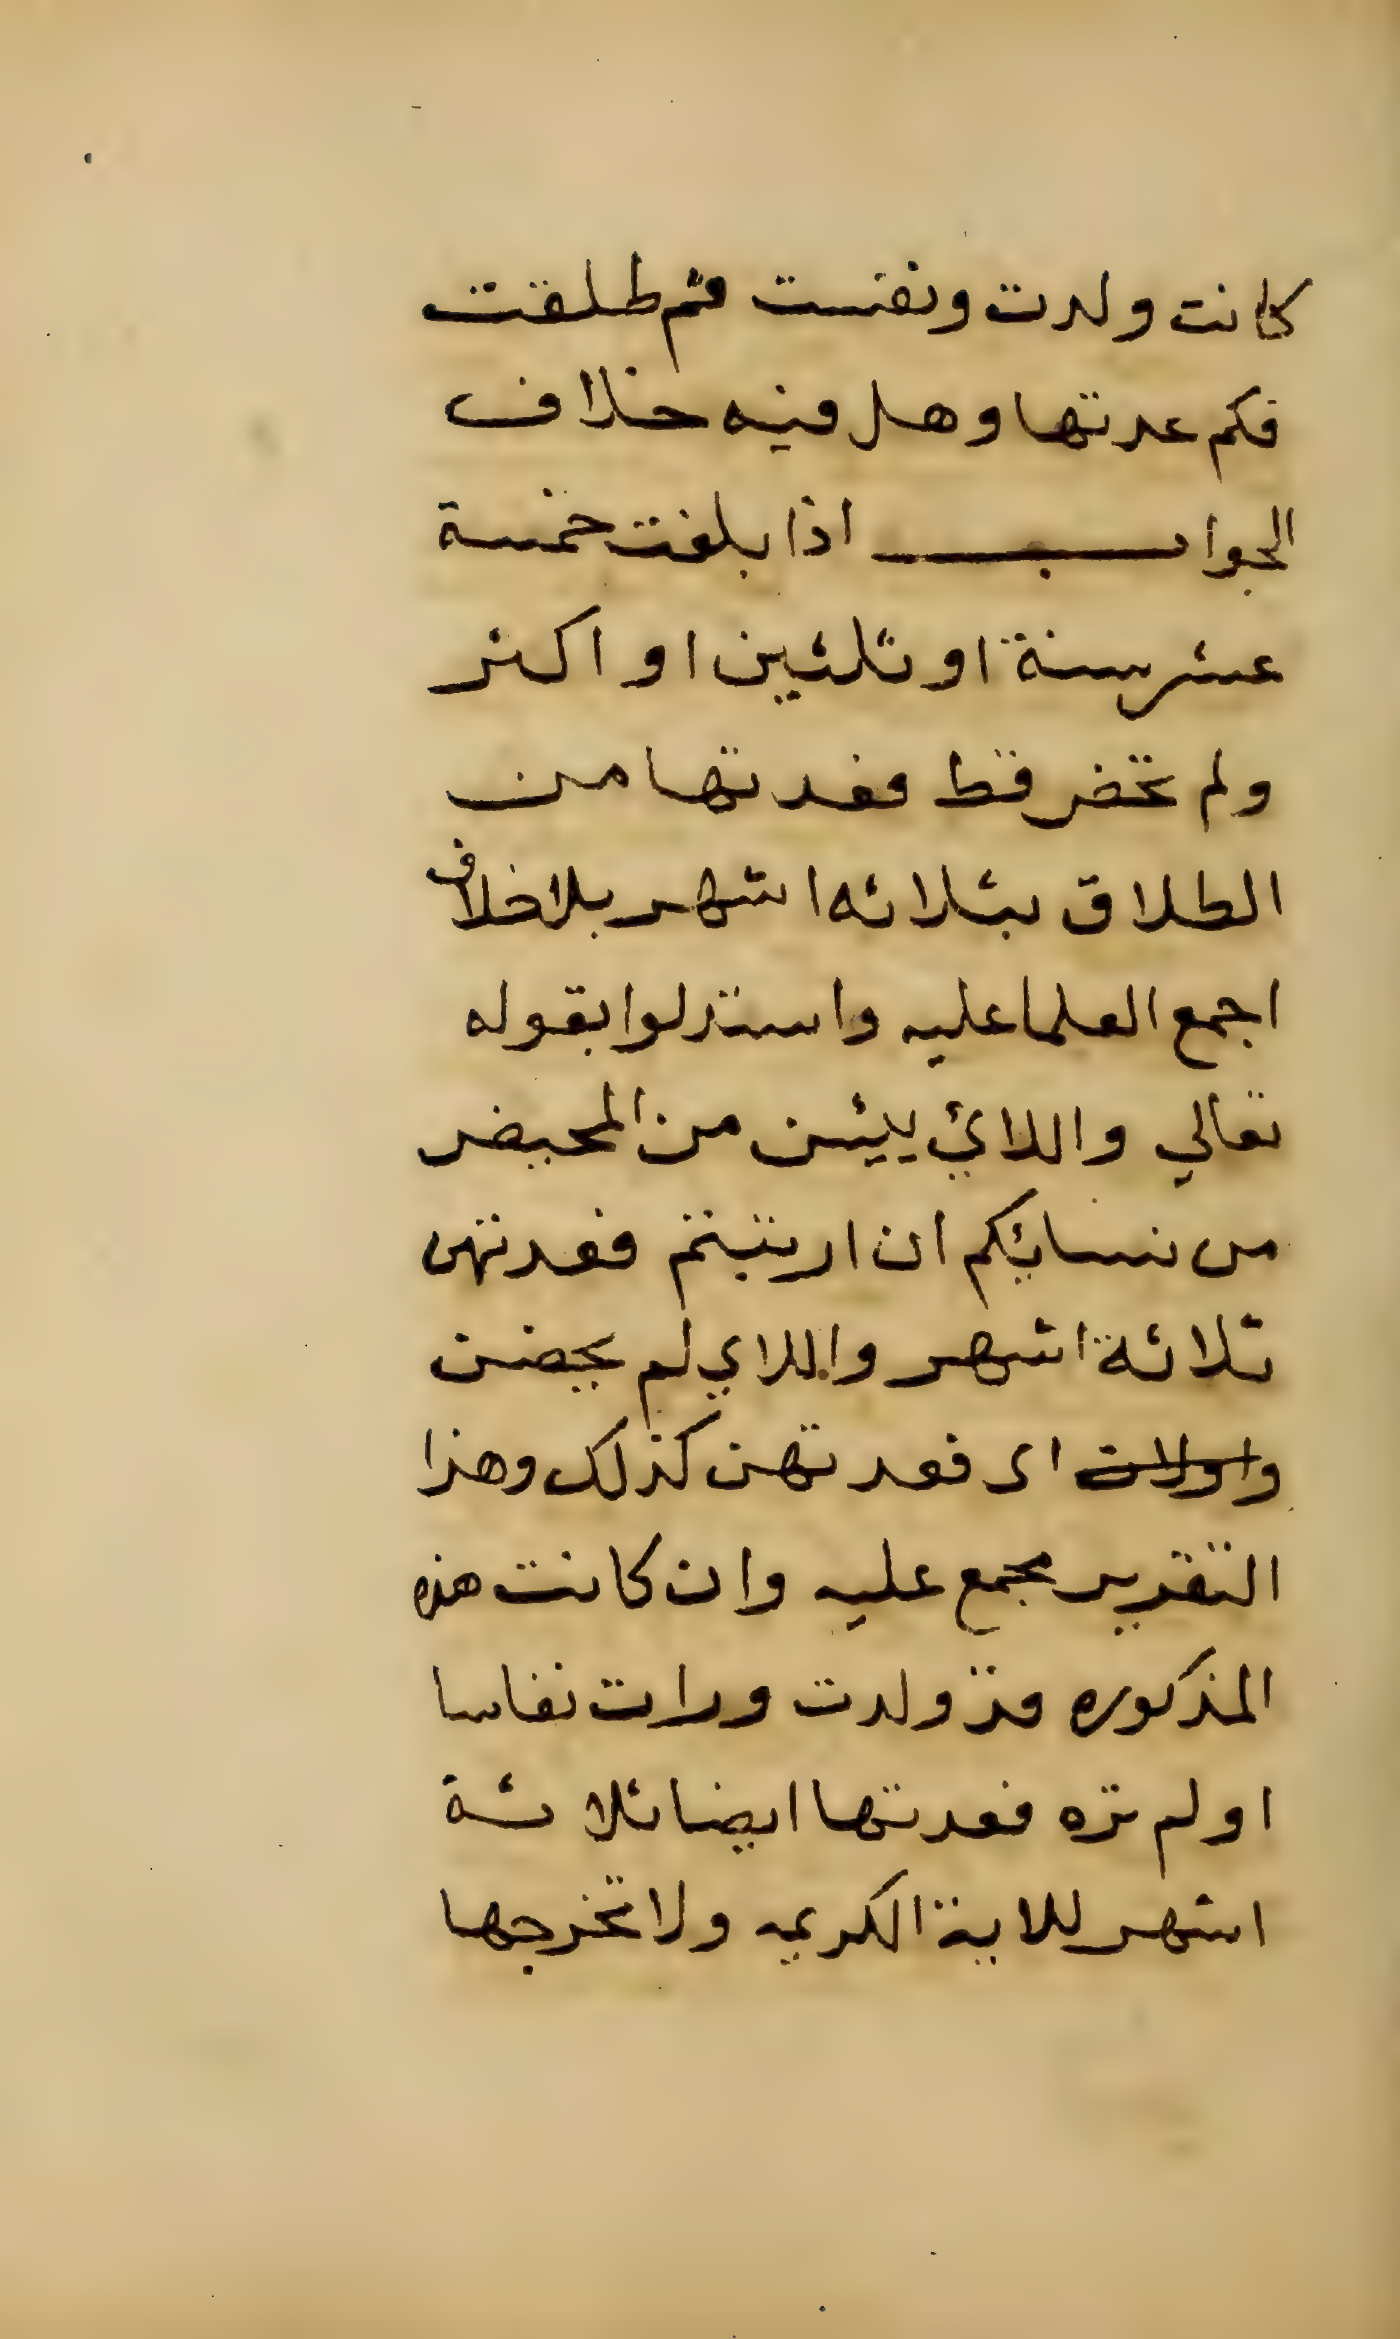 كانت ولدت ونفست ثم طلقت
فكم عدتها وهل فيه خلاف
الجواب اذا بلغت خمسة
عشر سنة او ثلثين او اكثر
ولم تحض قط فعدتها من
الطلاق بثلاثه اشهر بلا خلاف
اجمع العلما عليه واستدلوا بقوله
تعالي واللائي يئسن من المحيض
من نسائكم ان ارتبتم فعدتهن
ثلاثة اشهر واللاي لم يحضن
واولات اى فعدتهن كذلك وهذا
التقدير مجمع عليه وان كانت هذه
المذكوره قد ولدت ورات نفاسا
او لم تره فعدتها ايضا ثلاثة
اشهر للاية الكريمه ولا تخرجها